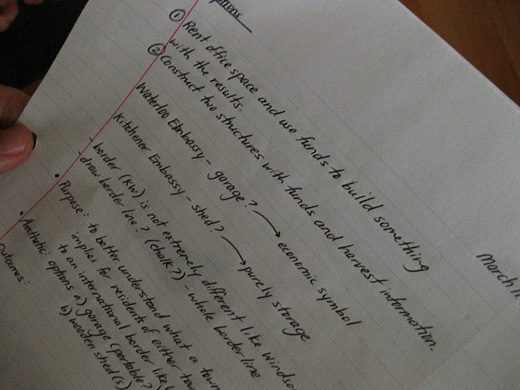 ① Rent office space and use funds to build something
with the results.
② Construct two structures with funds and harvest information.
Waterloo Embassy - garage? → economic symbol
Kitchener Embassy - shed? → purely storage
border (KW) is not extremely different like windsor
draw border line? (chalk?) - whole border line
• Purpose: to better understand what a town
implies for residents of either
to an international border like
• Aesthetic: options a) garage (portable?
b) wooden shed(s)
Outcomes:
March 11